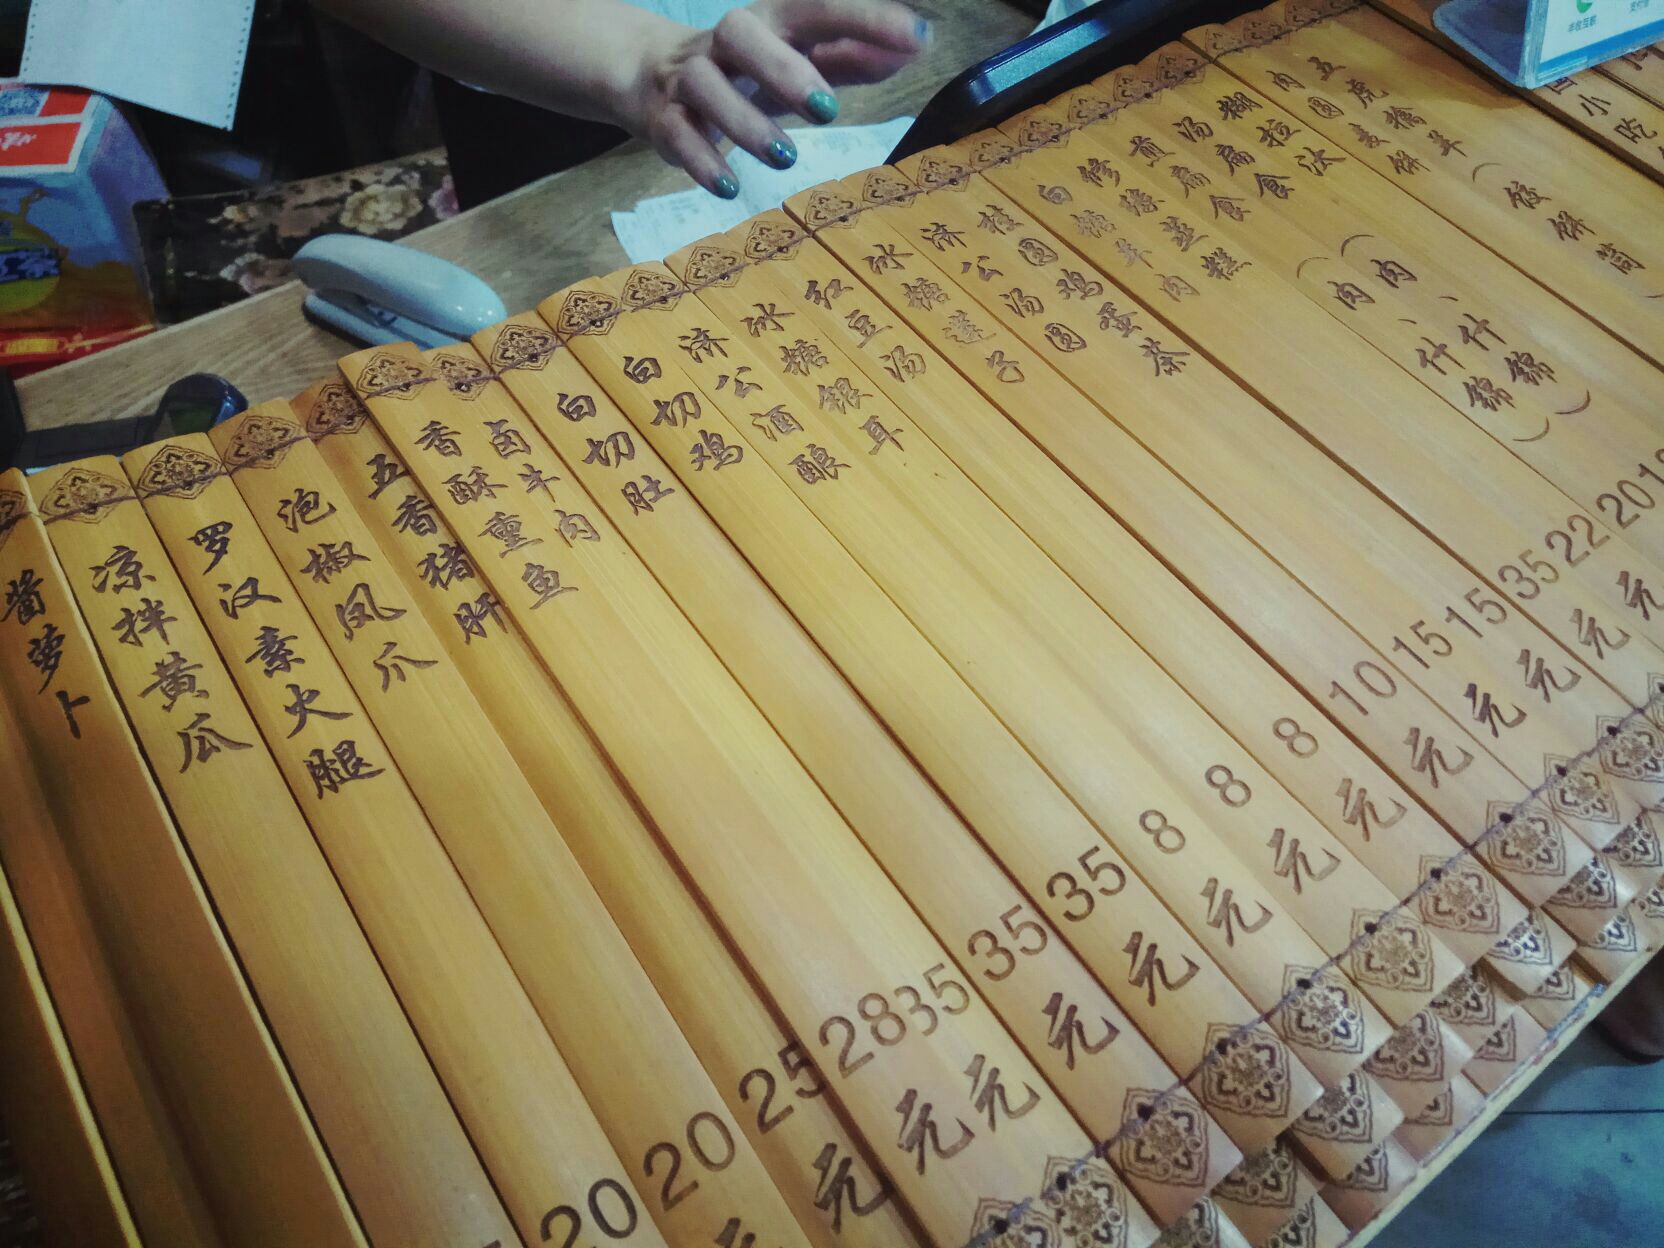 酱萝卜
凉拌黄瓜
罗汉素火腿 20
泡椒凤爪 20元
五香猪肝 25元
香酥熏鱼 28元
卤牛肉 35元
白切肚 35元
白切鸡 35元
济公酒酿 8元
冰糖银耳 8元
红豆汤 8元
冰糖莲子 10元
济公汤圆 15元
桂圆鸡蛋茶 15元
白 35元
修缘 22元
煎扁食(肉、什锦) 20元
汤扁食(肉、什锦)
糊拉汰
肉圆麦饼
五虎擒羊(饺饼筒)
小吃